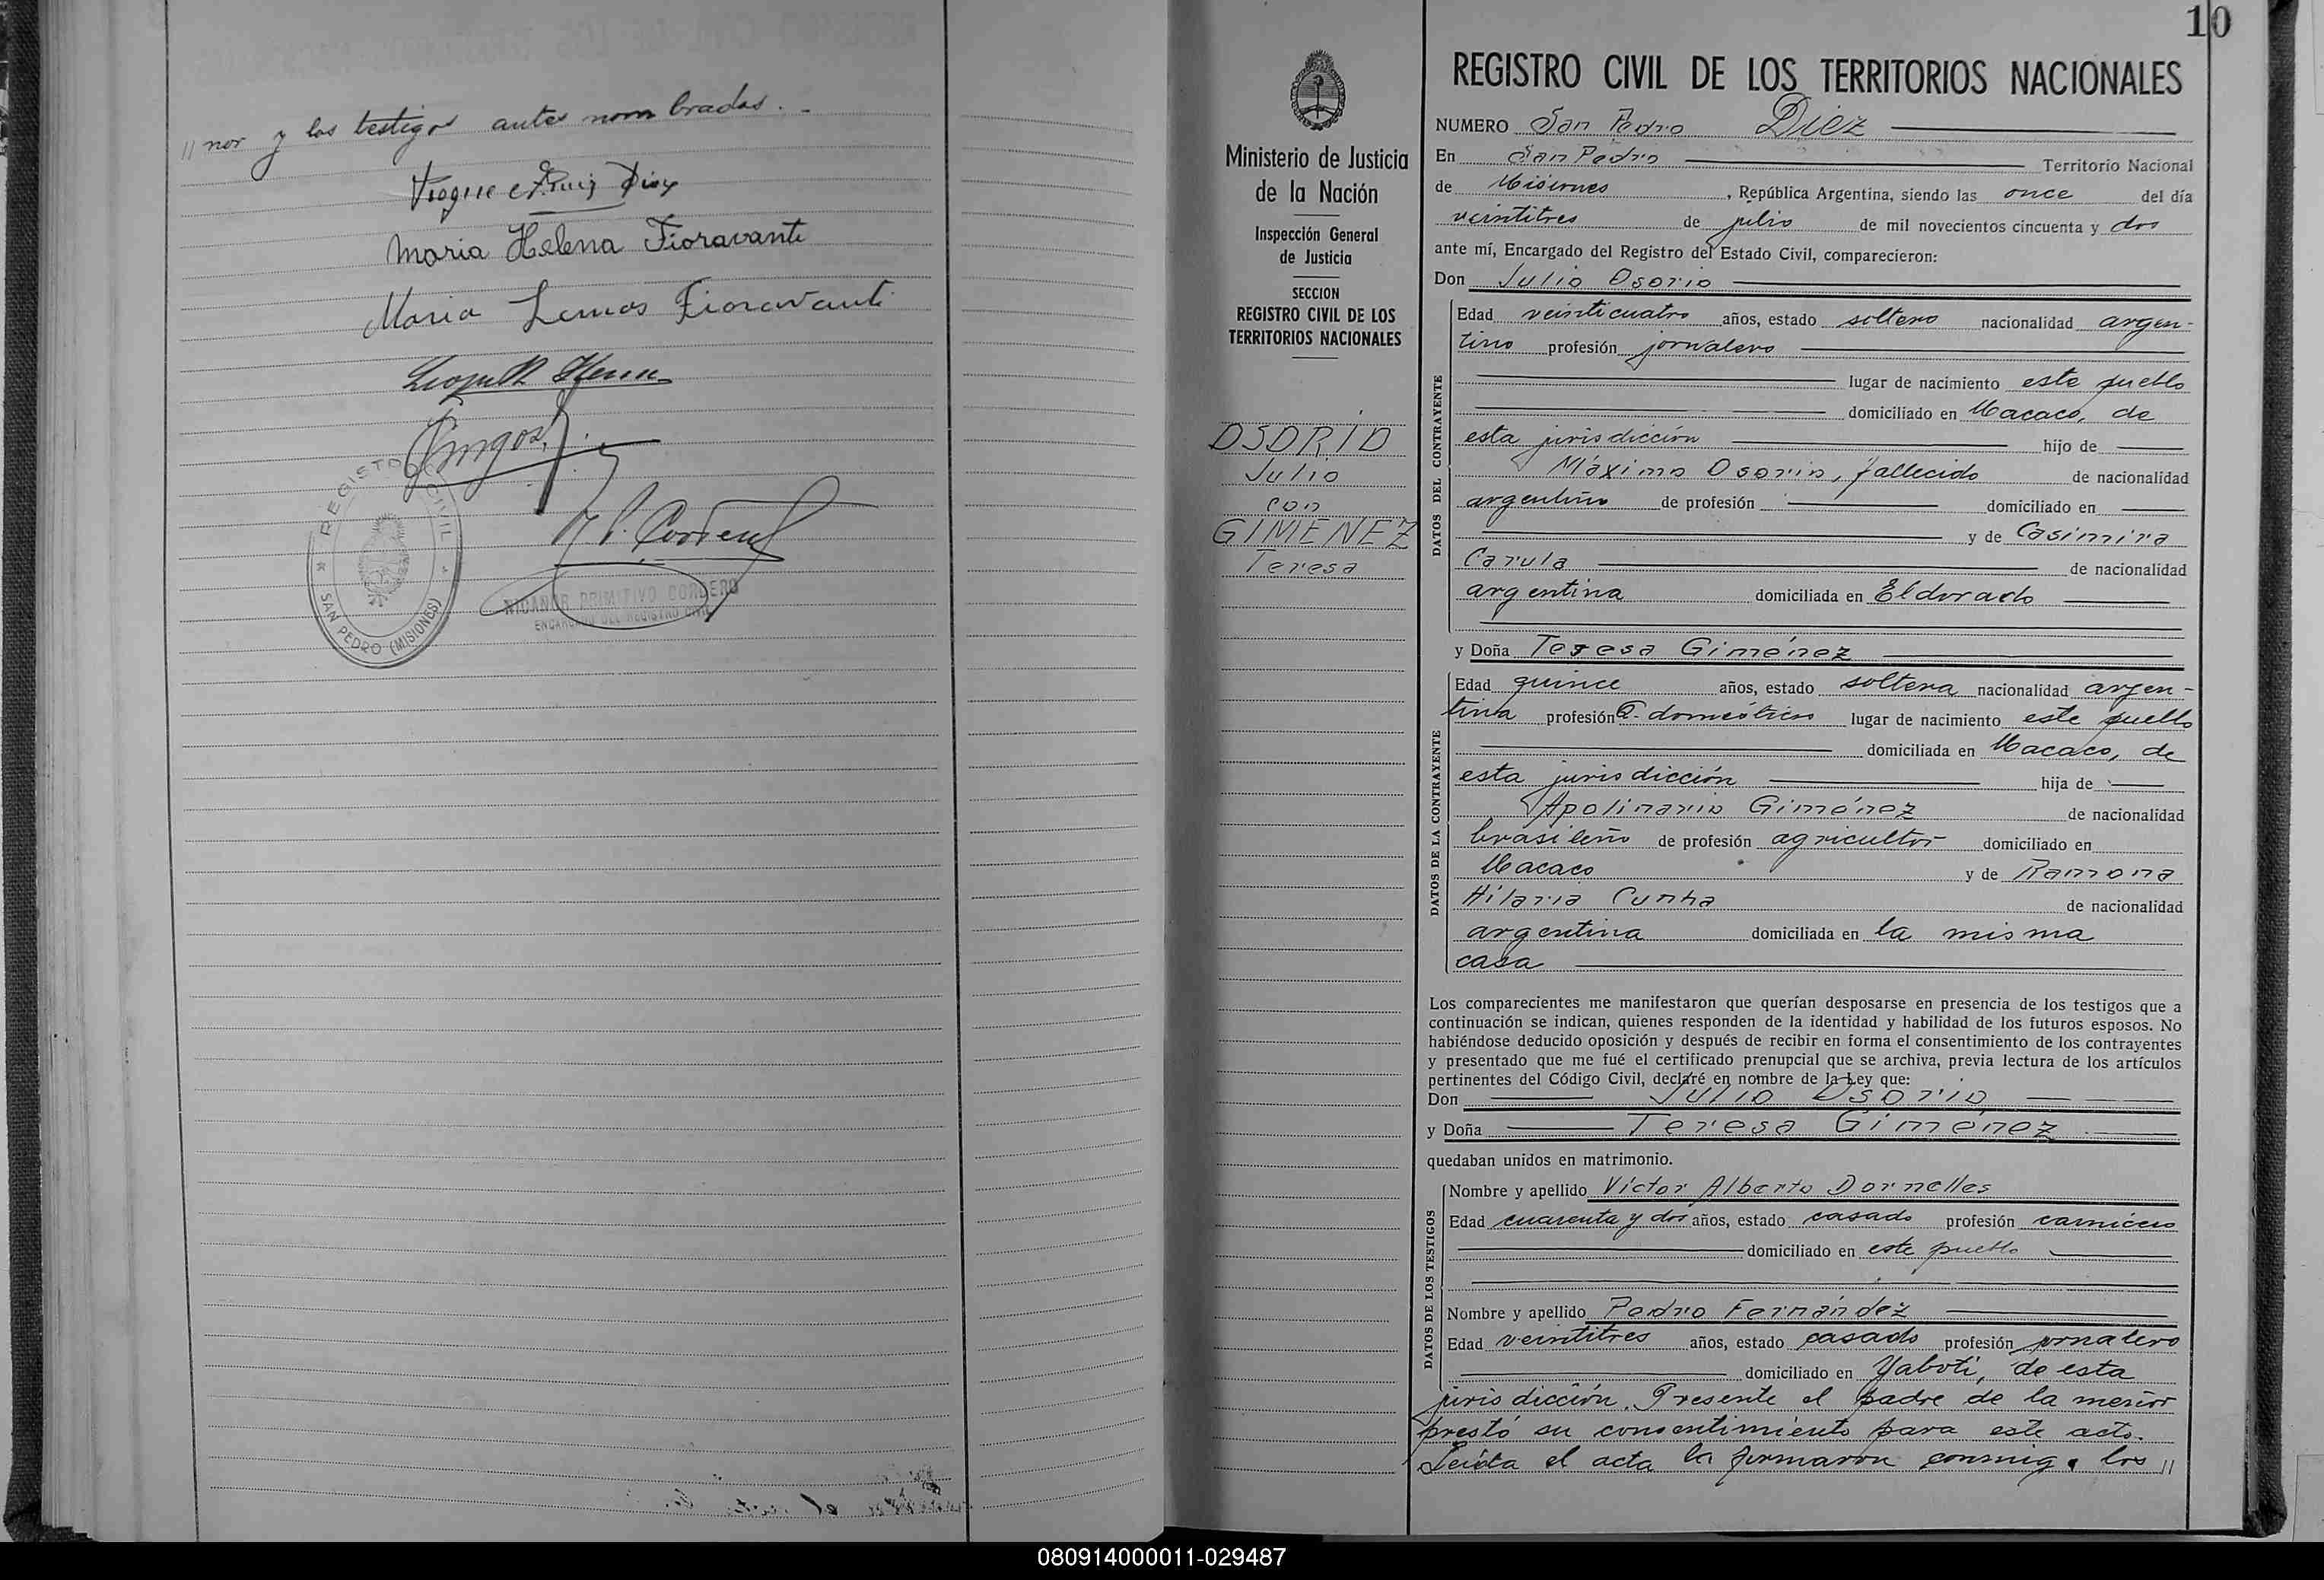 // nor y los testigos antes nombrados.-
Maria Helena Fioravante
Maria Lemos Fioravanti
REGISTRO CIVIL
SAN PEDRO (MISIONES)
NICANOR PRIMITIVO CORDERO
ENCARGADO DEL REGISTRO CIVIL
10
Ministerio de Justicia
de la Nación
Inspección General
de Justicia
SECCION
REGISTRO CIVIL DE LOS
TERRITORIOS NACIONALES
OSORIO
Julio
con
GIMENEZ
Teresa
REGISTRO CIVIL DE LOS TERRITORIOS NACIONALES
NUMERO San Pedro Diez
En San Pedro Territorio Nacional
de Misiones, República Argentina, siendo las once del día
veintitres de julio de mil novecientos cincuenta y dos
ante mí, Encargado del Registro del Estado Civil, comparecieron:
Don Julio Osorio
DATOS DEL CONTRAYENTE
Edad veinticuatro años, estado soltero nacionalidad argen-
tino profesión jornalero
lugar de nacimiento este pueblo
domiciliado en Macaco, de
esta jurisdicción hijo de
Máximo Osorio, fallecido de nacionalidad
argentino de profesión domiciliado en
y de Casimira
Carula de nacionalidad
argentina domiciliada en Eldorado
y Doña Teresa Giménez
DATOS DE LA CONTRAYENTE
Edad quince años, estado soltera nacionalidad argen-
tina profesión Q. domésticos lugar de nacimiento este pueblo
domiciliada en Macaco, de
esta jurisdicción hija de
Apolinario Giménez de nacionalidad
brasileño de profesión agricultor domiciliado en
Macaco y de Ramona
Hilaria Cunha de nacionalidad
argentina domiciliada en la misma
casa
Los comparecientes me manifestaron que querían desposarse en presencia de los testigos que a
continuación se indican, quienes responden de la identidad y habilidad de los futuros esposos. No
habiéndose deducido oposición y después de recibir en forma el consentimiento de los contrayentes
y presentado que me fué el certificado prenupcial que se archiva, previa lectura de los artículos
pertinentes del Código Civil, declaré en nombre de la Ley que:
Don Julio Osorio
y Doña Teresa Giménez
quedaban unidos en matrimonio.
DATOS DE LOS TESTIGOS
Nombre y apellido Víctor Alberto Dornelles
Edad cuarenta y dos años, estado casado profesión carnicero
domiciliado en este pueblo
Nombre y apellido Pedro Fernández
Edad veintitres años, estado casado profesión jornalero
domiciliado en Yabotí, de esta
jurisdicción. Presente el padre de la menor
prestó su consentimiento para este acto.
Leída el acta la firmaron conmigo los //
080914000011-029487